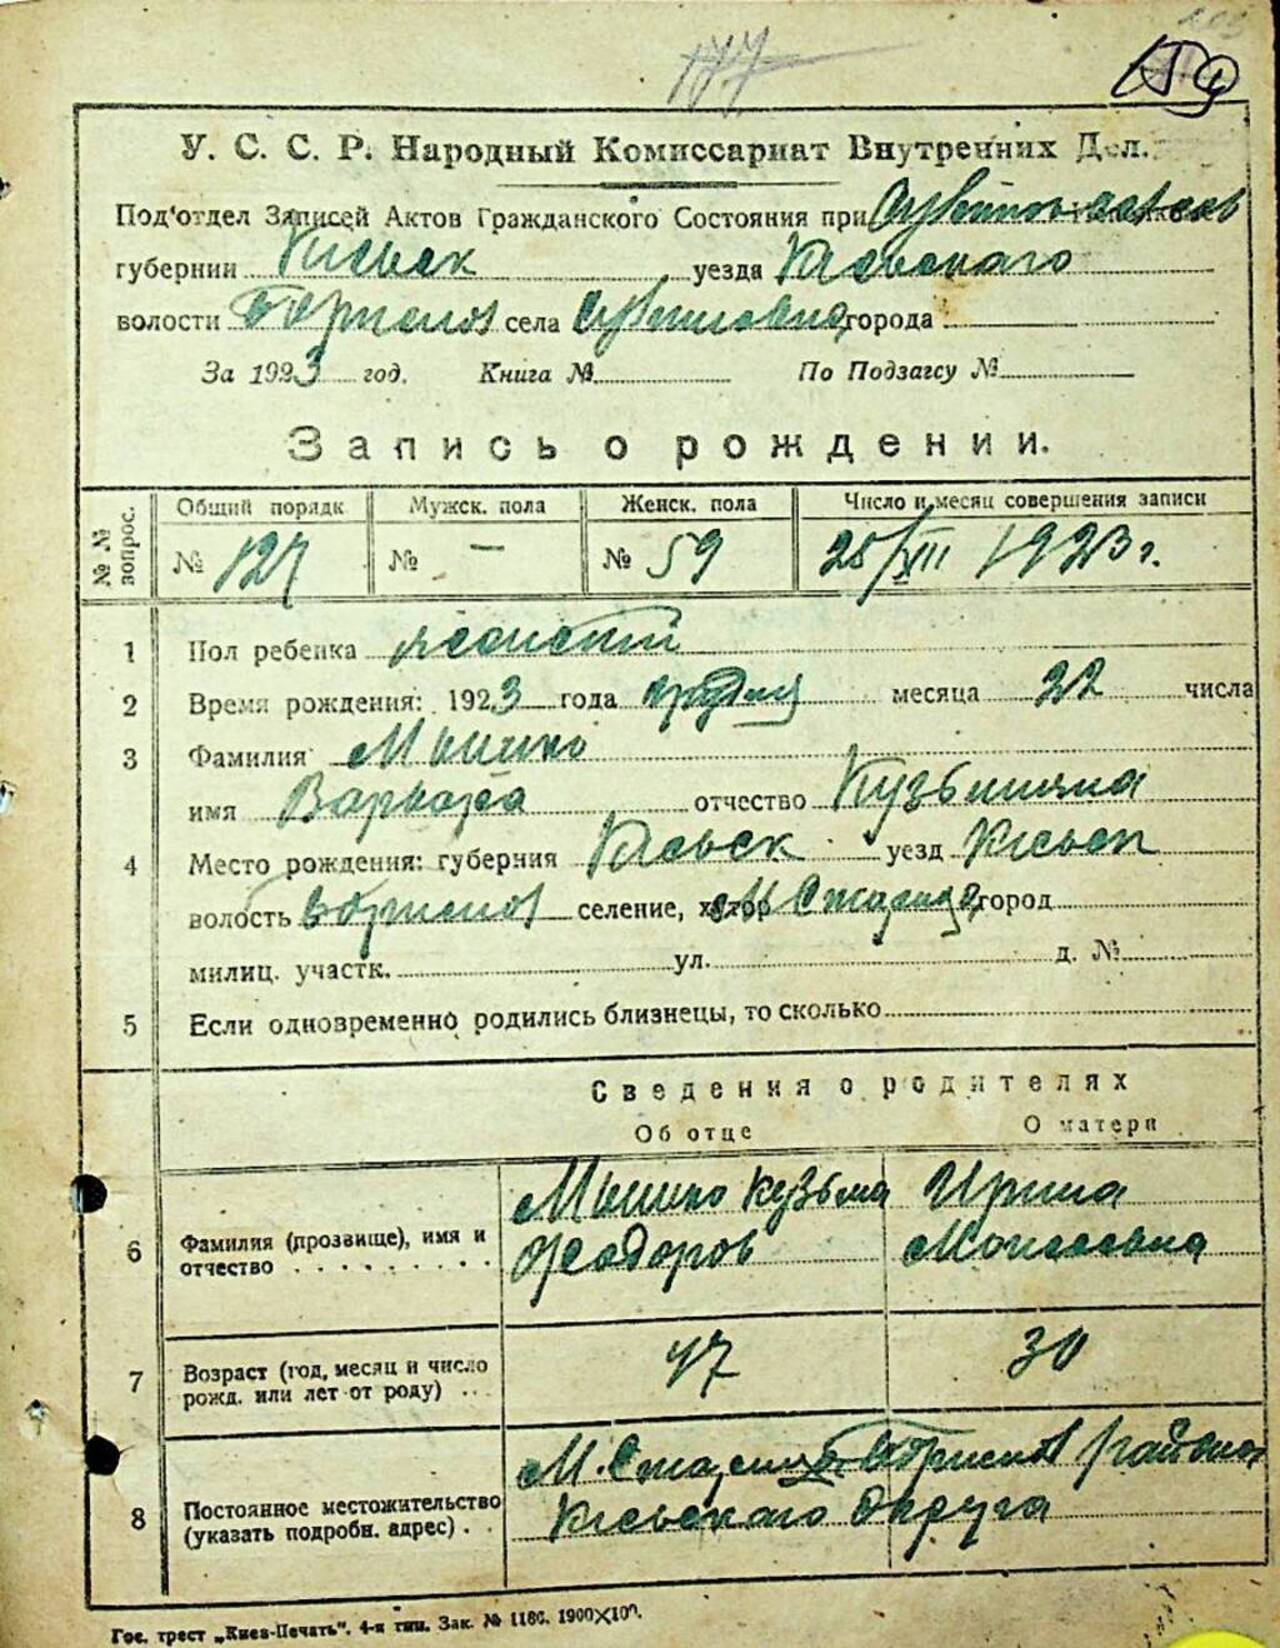 177
У. С. С. Р. Народный Комиссариат Внутренних Дел.
Под'отдел Записей Актов Гражданского Состояния при
губернии Киевск уезда Киевского
волости села города
За 1923 год. Книга № По Подзагсу №
Запись о рождении.
№№ вопрос. Общий порядк Мужск. пола Женск. пола Число и месяц совершения записи
№ 127 № — № 59 25/XII 1923 г.
1 Пол ребенка
2 Время рождения: 1923 года месяца 22 числа
3 Фамилия Мишко
имя Варвара отчество Кузьминична
4 Место рождения: губерния Киевск уезд Киевск
волость селение, хутор М Стариця город
милиц. участк. ул. д. №
5 Если одновременно родились близнецы, то сколько
Сведения о родителях
Об отце О матери
Мишко Кузьма Ирина
6 Фамилия (прозвище), имя и отчество Феодоров Моисеевна
7 Возраст (год, месяц и число рожд. или лет от роду) 47 30
М. Стариця района
8 Постоянное местожительство (указать подробн. адрес) Киевского Округа
Гос. трест „Киев-Печать". 4-я тип. Зак. № 1186. 1900×100.